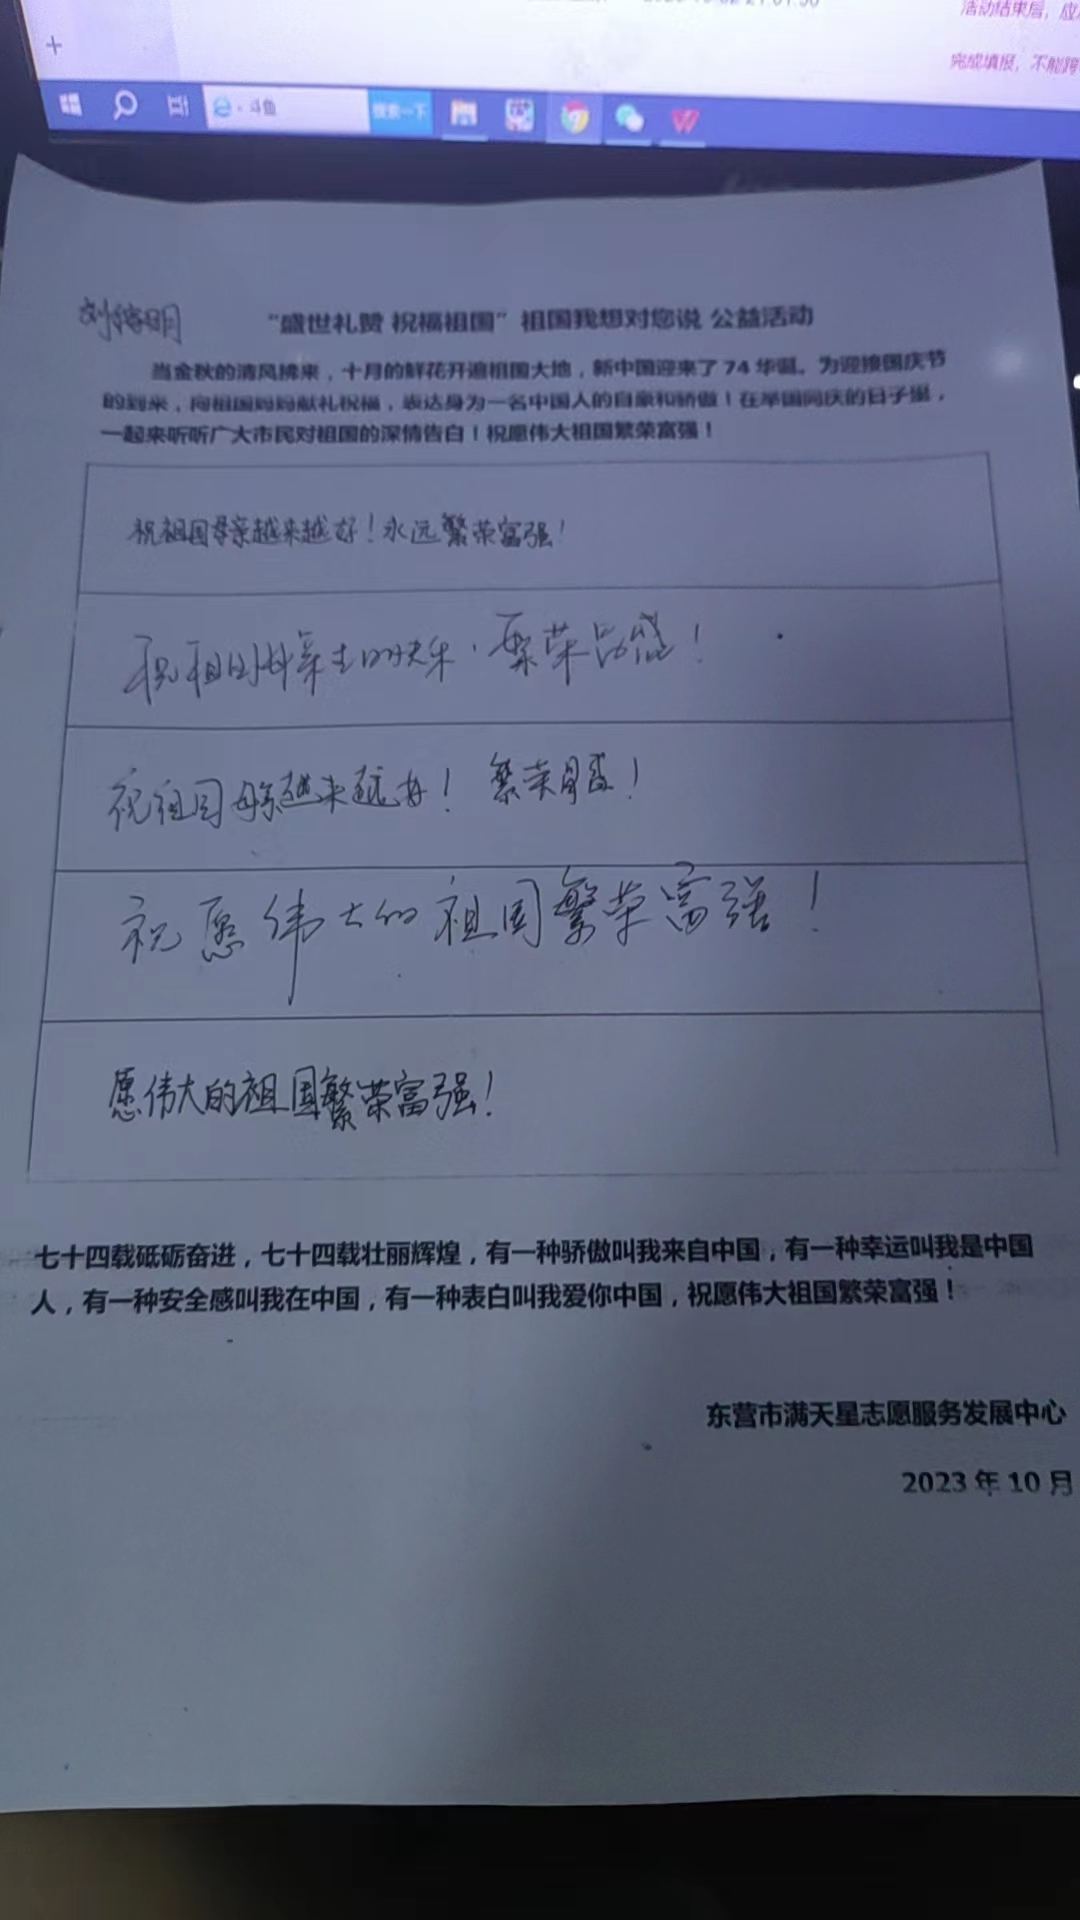 活动结束后，应
完成填报，不能跨
斗鱼
搜索一下
刘 明
“盛世礼赞 祝福祖国”祖国我想对您说 公益活动
当金秋的清风拂来，十月的鲜花开遍祖国大地，新中国迎来了 74 华诞。为迎接国庆节
的到来，向祖国妈妈献礼祝福，表达身为一名中国人的自豪和骄傲！在举国同庆的日子里，
一起来听听广大市民对祖国的深情告白！祝愿伟大祖国繁荣富强！
祝祖国母亲越来越好！永远繁荣富强！
祝祖国母亲生日快乐，繁荣昌盛！
祝祖国母亲越来越好！繁荣昌盛！
祝愿伟大的祖国繁荣富强！
愿伟大的祖国繁荣富强！
七十四载砥砺奋进，七十四载壮丽辉煌，有一种骄傲叫我来自中国，有一种幸运叫我是中国
人，有一种安全感叫我在中国，有一种表白叫我爱你中国，祝愿伟大祖国繁荣富强！
东营市满天星志愿服务发展中心
2023 年 10 月